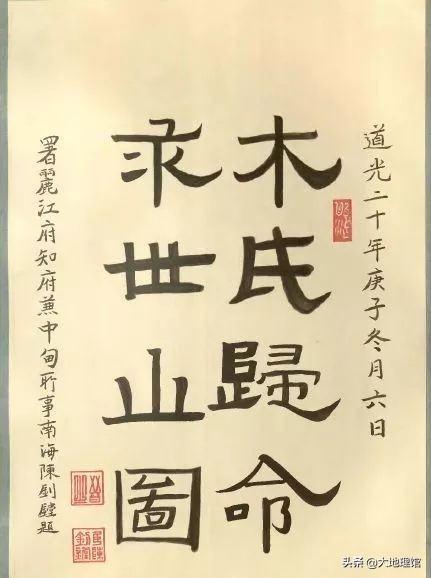 道光二十年庚子冬月六日
木氏歸命
求世之圖
署麗江府知府兼中甸廳事南海陳釗鏜題
头条@大地理馆